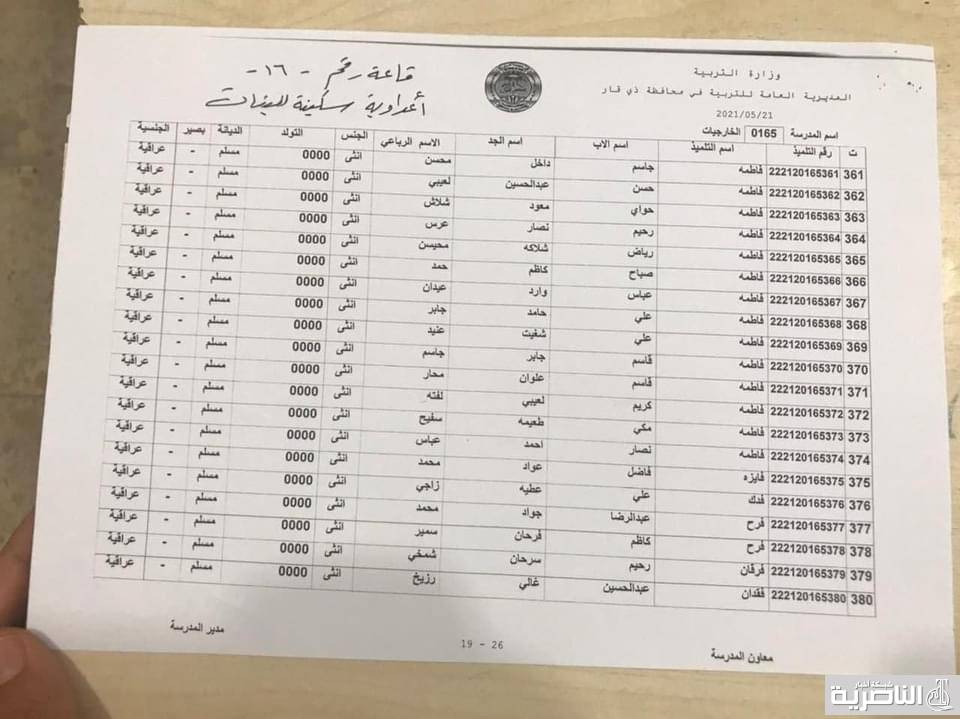 وزارة التربية
المديرية العامة للتربية في محافظة ذي قار
2021/05/21
قاعة رقم - ١٦ -
أعدادية سكينة للبنات
اسم المدرسة 0165 الخارجيات
ت رقم التلميذ اسم التلميذ اسم الاب اسم الجد الاسم الرباعي الجنس التولد الديانة بصير الجنسية
361 222120165361 فاطمه جاسم داخل محسن انثى 0000 مسلم - عراقية
362 222120165362 فاطمه حسن عبدالحسين لعيبي انثى 0000 مسلم - عراقية
363 222120165363 فاطمه حواي معود شلاش انثى 0000 مسلم - عراقية
364 222120165364 فاطمه رحيم نصار عرس انثى 0000 مسلم - عراقية
365 222120165365 فاطمه رياض شلاكه محيسن انثى 0000 مسلم - عراقية
366 222120165366 فاطمه صباح كاظم حمد انثى 0000 مسلم - عراقية
367 222120165367 فاطمه عباس وارد عيدان انثى 0000 مسلم - عراقية
368 222120165368 فاطمه علي حامد جابر انثى 0000 مسلم - عراقية
369 222120165369 فاطمه علي شغيت عنيد انثى 0000 مسلم - عراقية
370 222120165370 فاطمه قاسم جابر جاسم انثى 0000 مسلم - عراقية
371 222120165371 فاطمه قاسم علوان محار انثى 0000 مسلم - عراقية
372 222120165372 فاطمه كريم لعيبي لفته انثى 0000 مسلم - عراقية
373 222120165373 فاطمه مكي طعيمه سفيح انثى 0000 مسلم - عراقية
374 222120165374 فاطمه نصار احمد عباس انثى 0000 مسلم - عراقية
375 222120165375 فايزه فاضل عواد محمد انثى 0000 مسلم - عراقية
376 222120165376 فدك علي عطيه زاجي انثى 0000 مسلم - عراقية
377 222120165377 فرح عبدالرضا جواد محمد انثى 0000 مسلم - عراقية
378 222120165378 فرح كاظم فرحان سمير انثى 0000 مسلم - عراقية
379 222120165379 فرقان رحيم سرحان شمخي انثى 0000 مسلم - عراقية
380 222120165380 فقدان عبدالحسين غالي رزيخ انثى 0000 مسلم - عراقية
معاون المدرسة
19 - 26
مدير المدرسة
شبكة أخبار
الناصرية